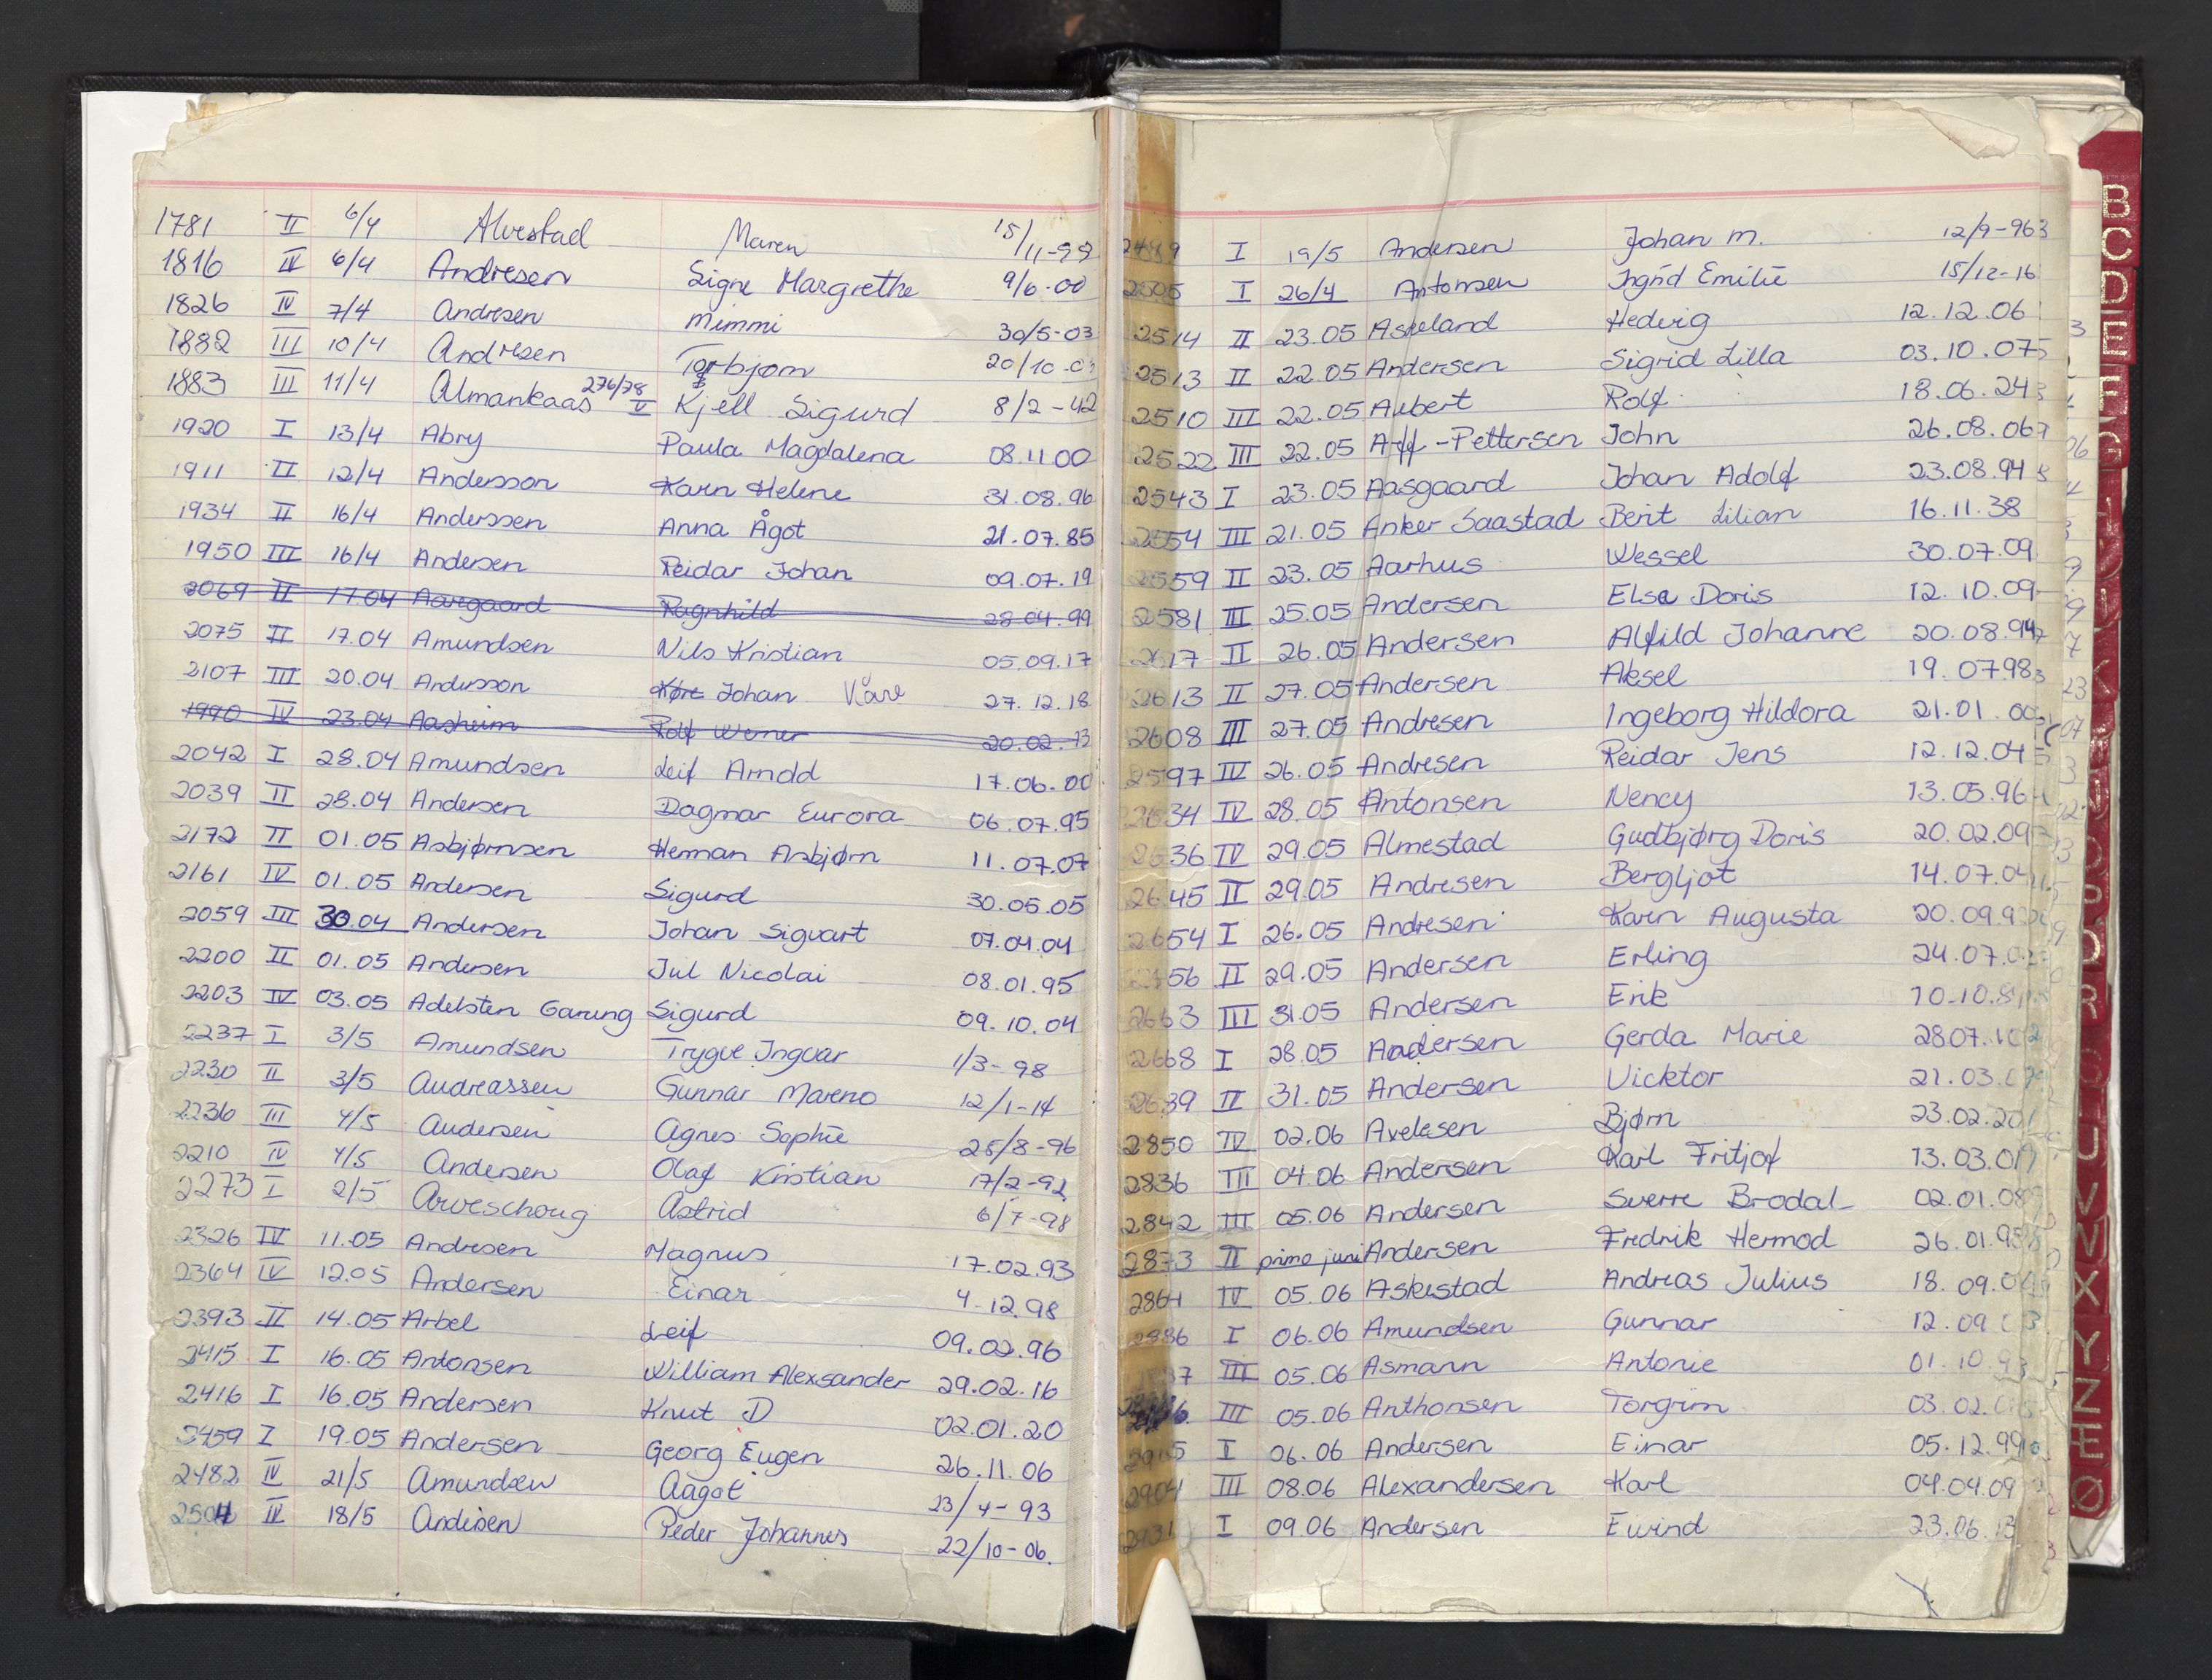 1781 II 6/4 Alvestad Maren 15/11-99
1816 IV 6/4 Andresen Signe Margrethe 9/6-00
1826 IV 7/4 Andresen Mimmi 30/5-03
1882 III 10/4 Andresen Torbjørn 20/10-0
1883 III 11/4 Almankaas 276/78 V Kjell Sigurd 8/2-42
1920 I 13/4 Abry Paula Magdalena 08.11.00
1911 II 12/4 Andersson Karn Helene 31.08.96
1934 II 16/4 Anderssen Anna Ågot 21.07.85
1950 III 16/4 Andersen Reidar Johan 09.07.19
2069 II 17.04 Aaregaard Ragnhild 28.04.99
2075 II 17.04 Amundsen Nils Kristian 05.09.17
2107 III 20.04 Andersson Køre Johan Kåre 27.12.18
1990 IV 23.04 Aasheim Rolf Werner 20.02.13
2042 I 28.04 Amundsen Leif Arnold 17.06.00
2039 II 28.04 Andersen Dagmar Eurora 06.07.95
2172 II 01.05 Asbjørnsen Herman Asbjørn 11.07.07
2161 IV 01.05 Andersen Sigurd 30.05.05
2059 III 30.04 Andersen Johan Sigvart 07.04.04
2200 II 01.05 Andersen Jul Nicolai 08.01.95
2203 IV 03.05 Adelsten Garung Sigurd 09.10.04
2237 I 3/5 Amundsen Trygve Ingvar 1/3-98
2230 II 3/5 Andreassen Gunnar Mareno 12/1-14
2236 III 4/5 Andersen Agnes Sophie 25/8-96
2210 IV 4/5 Andersen Olaf Kristian 17/2-92
2273 I 2/5 Arveschoug Astrid 6/7-98
2326 IV 11.05 Andresen Magnus 17.02.93
2364 IV 12.05 Andersen Einar 4.12.98
2393 II 14.05 Arbel Leif 09.02.96
2415 I 16.05 Antonsen William Alexsander 29.02.16
2416 I 16.05 Andersen Knut D 02.01.20
2459 I 19.05 Andersen Georg Eugen 26.11.06
2482 IV 21/5 Amundsen Aagot 23/4-93
2504 IV 18/5 Andersen Peder Johannes 22/10-06.
2489 I 19/5 Andersen Johan M. 12/9-96
2505 I 26/4 Antonsen Ingrid Emilie 15/12-16
2514 II 23.05 Askeland Hedvig 12.12.06
2513 II 22.05 Andersen Sigrid Lilla 03.10.07
2510 III 22.05 Albert Rolf 18.06.24
2522 III 22.05 Arff-Pettersen John 26.08.06
2543 I 23.05 Aasgaard Johan Adolf 23.08.94
2554 III 21.05 Anker Saastad Berit Lilian 16.11.38
2559 II 23.05 Aarhus Wessel 30.07.09
2581 III 25.05 Andersen Elsa Doris 12.10.09
2617 II 26.05 Andersen Alfild Johanne 20.08.94
2613 II 27.05 Andersen Aksel 19.07.98
2608 III 27.05 Andresen Ingeborg Hildora 21.01.00
2597 IV 26.05 Andresen Reidar Jens 12.12.04
2634 IV 28.05 Antonsen Nency 13.05.96
2636 IV 29.05 Almestad Gudbjørg Doris 20.02.09
2645 II 29.05 Andresen Bergljot 14.07.04
2654 I 26.05 Andresen Karn Augusta 20.09.9
2656 II 29.05 Andersen Erling 24.07.0
2663 III 31.05 Andersen Erik 10.10.8
2668 I 28.05 Andersen Gerda Marie 28.07.10
2689 II 31.05 Andersen Vicktor 21.03.0
2850 IV 02.06 Avelesen Bjørn 23.02.20
2836 III 04.06 Andersen Karl Fritjof 13.03.01
2842 III 05.06 Andersen Sverre Brodal 02.01.08
2873 II primo juni Andersen Fredrik Hermod 26.01.95
2864 IV 05.06 Askestad Andreas Julius 18.09.0
2886 I 06.06 Amundsen Gunnar 12.09.0
37 III 05.06 Asmann Antonie 01.10.93
III 05.06 Anthonsen Torgrim 03.02.0
2915 I 06.06 Andersen Einar 05.12.99
2904 III 08.06 Alexandersen Karl 04.04.09
2931 I 09.06 Andersen Eivind 23.06.13
B
C
D
E
F
G
I
J
K
O
R
U
V
W
X
Y
Z
Æ
Ø